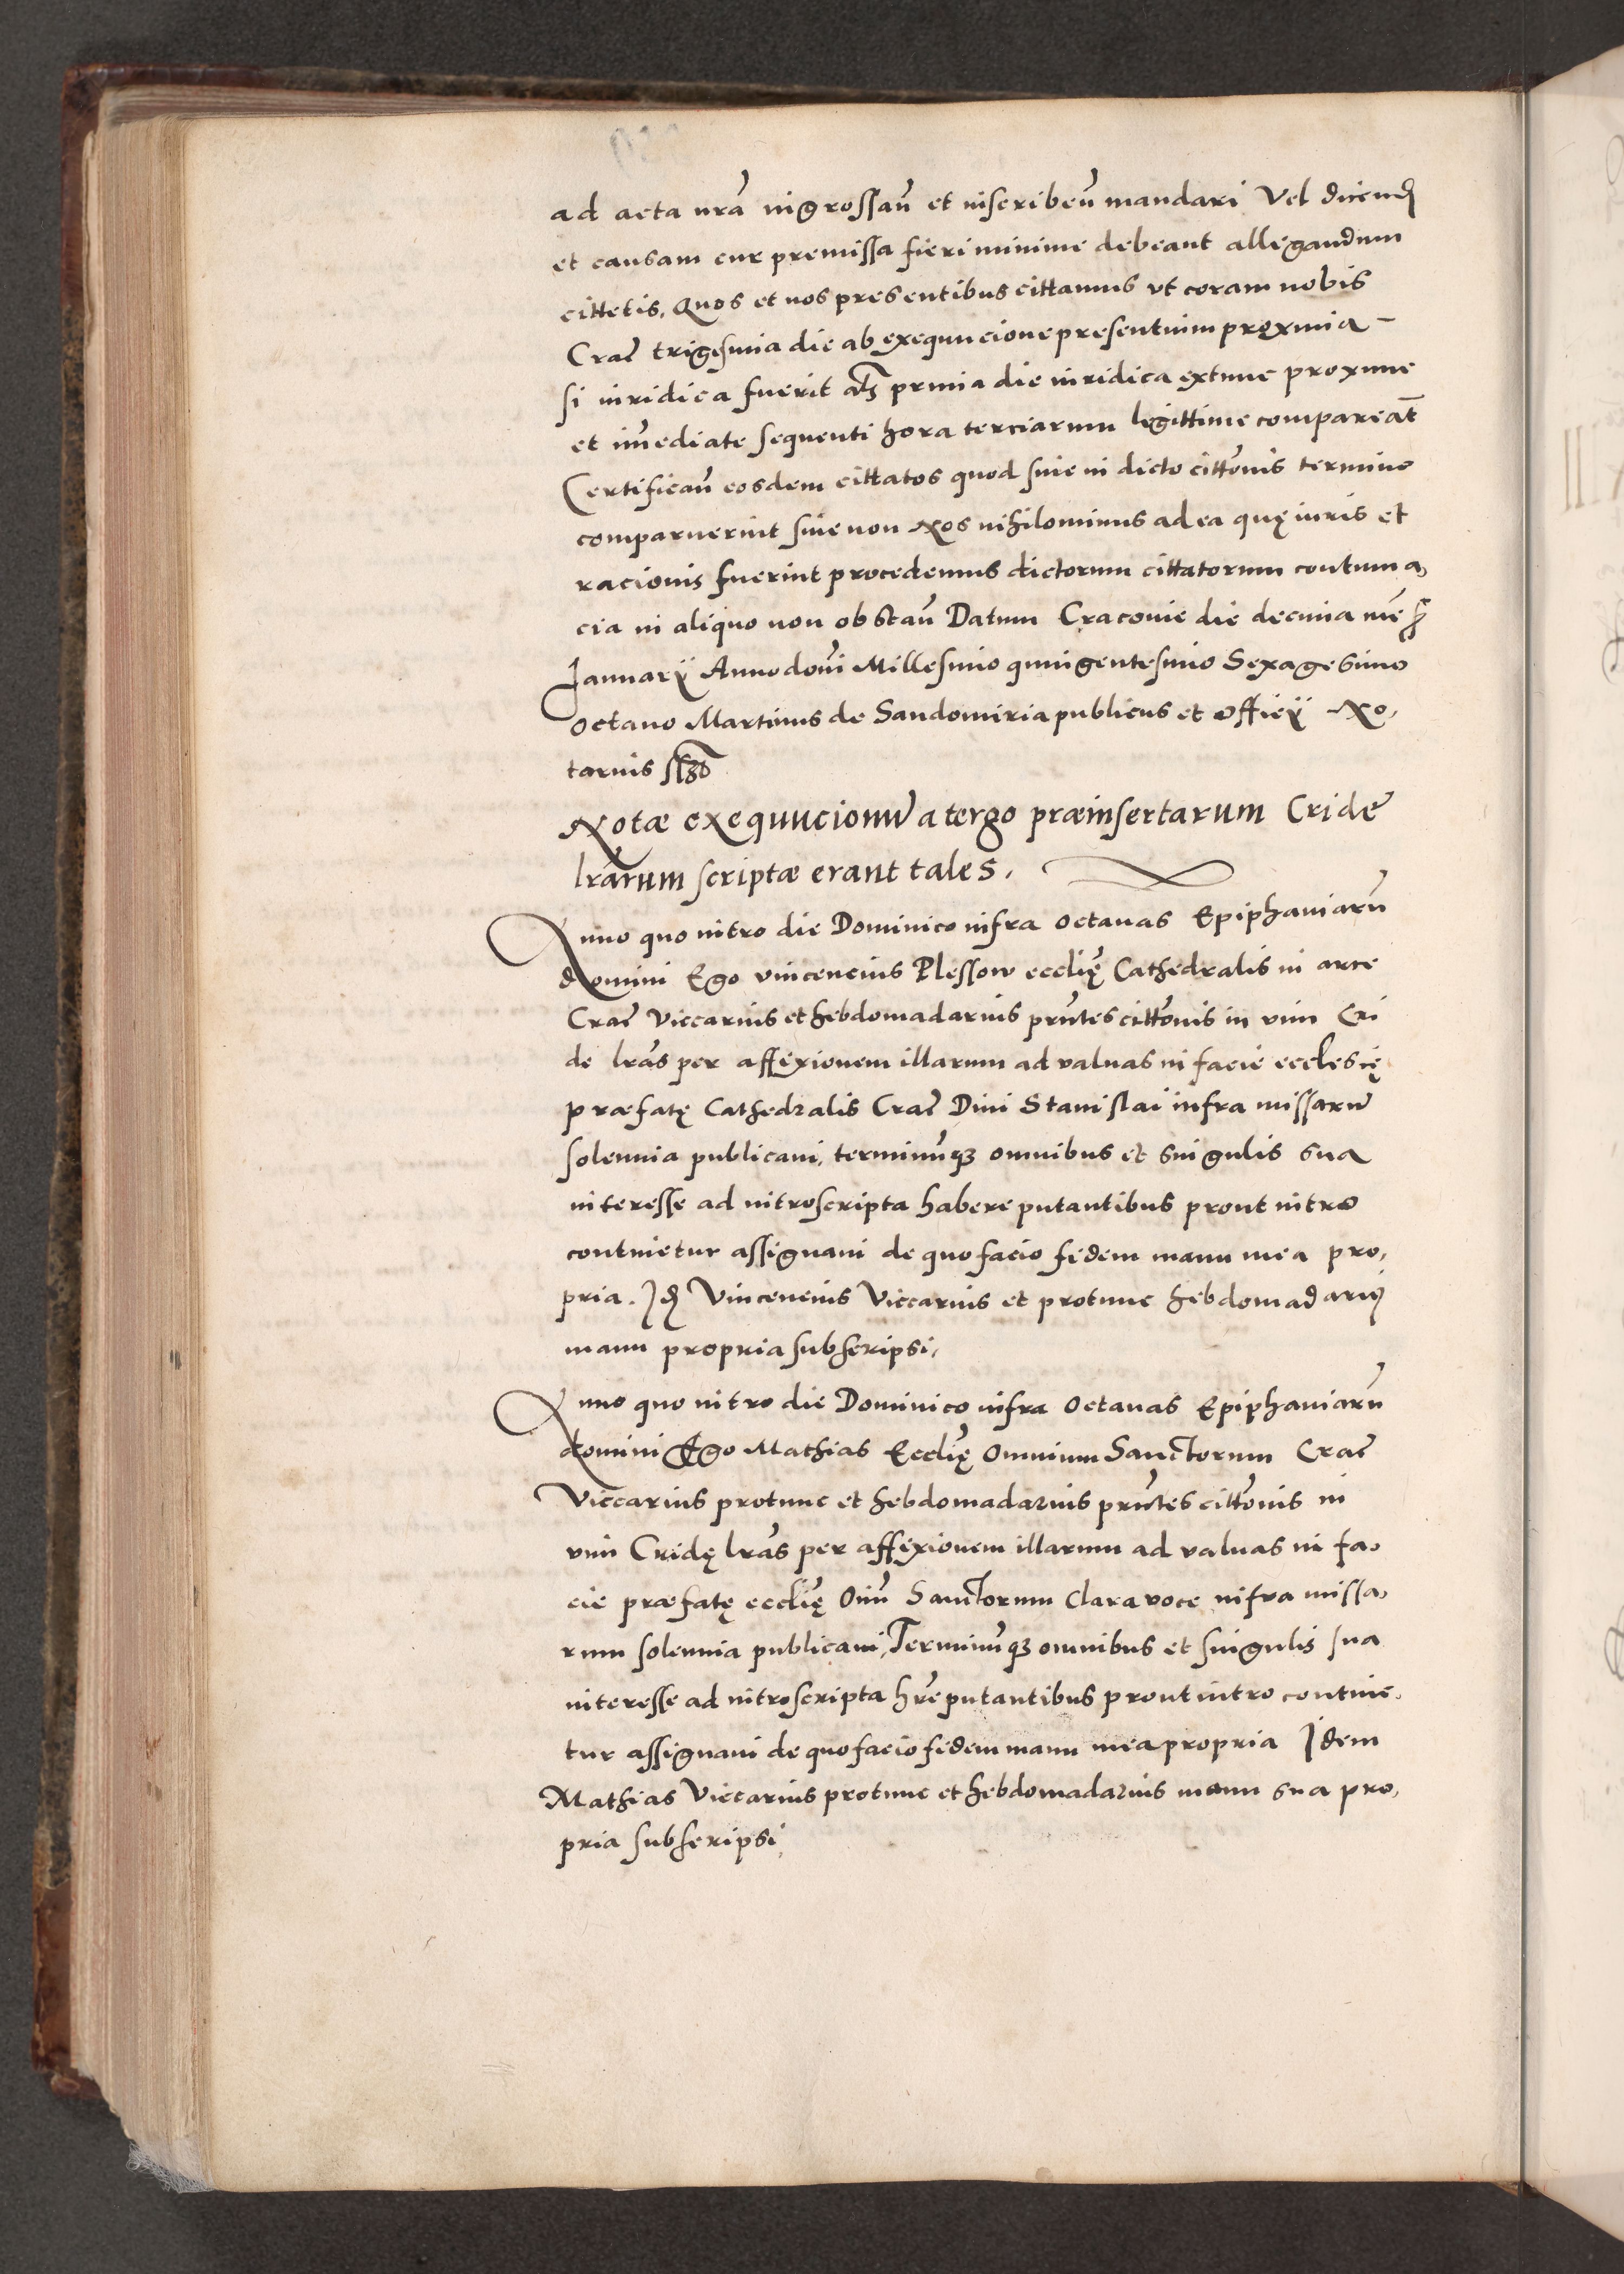 ad acta nrã ingrossañ et inscribeñ mandari Vel dicend
et causam cur premissa fieri minime debeant allegandum
cittetis, Quos et nos presentibus cittamus vt coram nobis
Crac trigesima die ab exequucione presentium proxima
si iuridica fuerit als prima die iuridica extunc proxime
et imediate sequenti hora terciarum legittime compareãt
Certificañ eosdem cittatos quod siue in dicto cittonis termino
comparuerint siue non Nos nihilominus ad ea quę iuris et
racionis fuerint procedemus dictorum cittatorum contuma,
cia in aliquo non obstañ Datum Cracouie die decima mẽ
Ianuarij Anno doni Millesimo quingentesimo Sexagesimo
octauo Martinus de Sandomiria publicus et officij No,
tarius
Notæ exequucionũ a tergo præinsertarum Cridę
lrãrum scriptæ erant tales.
Anno quo intro die Dominico infra octauas Epiphaniarũ
domini Ego vincencius Plessow ecclię Cathedralis in arce
Crac Viccarius et hebdomadarius pñtes cittonis in vim Cri
de lrãs per affixionem illarum ad valuas in facie ecclesię
præfatę Cathedralis Crac Diui Stanislai infra missarũ
solennia publicaui, terminũqȝ omnibus et singulis sua
interesse ad introscripta habere putantibus prout intro
continetur assignaui de quo facio fidem manu mea pro,
pria. Id Vincencius Viccarius et protunc hebdomadarius
manu propria subscripsi,
Anno quo intro die Dominico infra Octauas Epiphaniarũ
domini Ego Mathias Ecclię Omnium Sanctorum Crac
Viccarius protunc et hebdomadarius pñtes cittonis in
vim Cridę lrãs per affixionem illarum ad valuas in fa,
cie præfatę ecclię Oim Sanctorum clara voce infra missa,
rum solennia publicaui, Terminũqȝ omnibus et singulis sua
interesse ad introscripta hre putantibus prout intro contine,
tur assignaui de quo facio fidem manu mea propria Idem
Mathias Viccarius protunc et hebdomadarius manu sua pro,
pria subscripsi